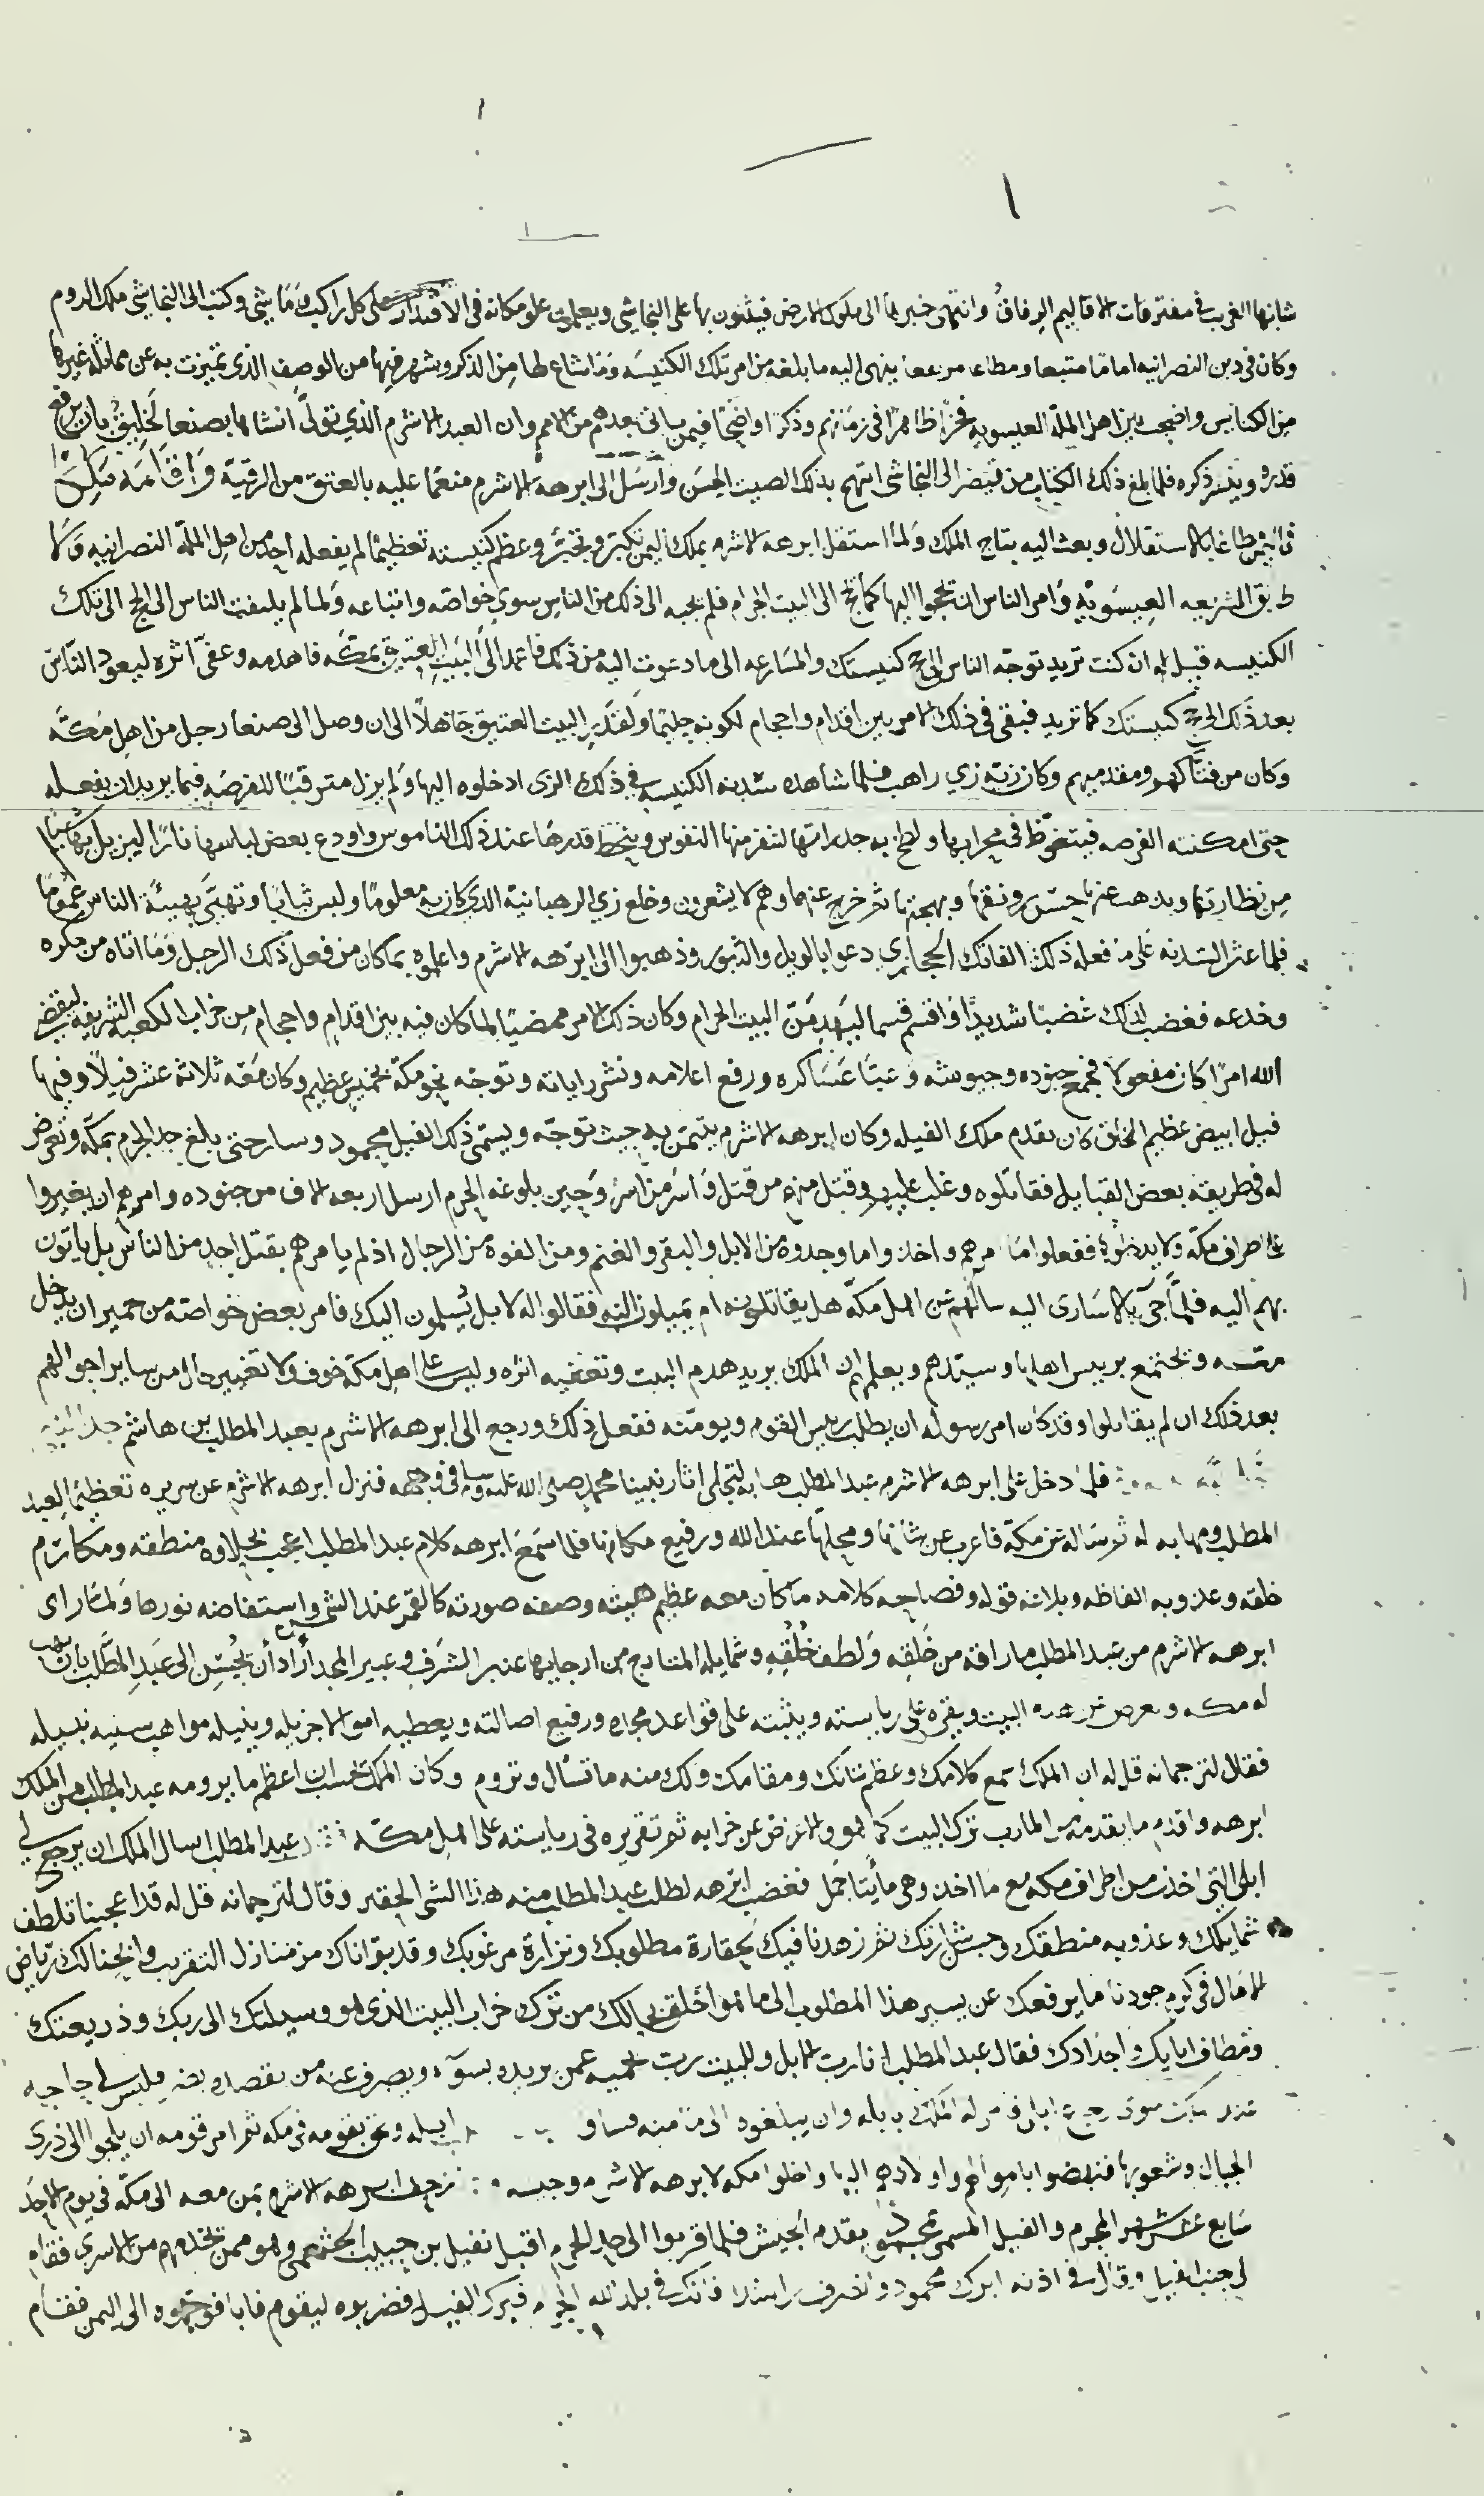 شانها الغرب في مفترقات الاقاليم الرفاق وانتهى خبرها الى ملوك الارض فيثنون بها على النجاشي ويعلمون علو مكانه في الاقتدار على كل راكب وماشي وكتب الى النجاشي ملك الروم
وكان في دين النصرانيه اماما متبعا ومطاعا ينهى اليه ما بلغه من امر تلك الكنيسه وما شاع لها من الذكر وشهر فيها من الوصف الذي تميزت به عن مماثله غيرها
من الكنايس واضحت بين اهل الملة العيسويه فخرا ظاهرا في زمانهم وذكرا واضحا فيمن ياتي بعدهم من الامم وان العبد الاشرم الذي تولى انشاها بصنعا لخليق بان يرفع
قدره وينشر ذكره فلما بلغ ذلك الكتاب من قيصر الى النجاشي ابتهج بذلك الصيت الحسن وارسل الى ابرهه الاشرم منعما عليه بالعتق من الرقية واقامه ملكا
بالاستقلال وبعث اليه بتاج الملك ولما استقل ابرهه الاشرم بملك اليمن تكبر وتجبر وعظم كنيسته تعظيما لم يفعله احد من اهل الملة النصرانيه ولا
طابق الشريعه العيسوية وامر الناس ان يحجوا اليها كما يحج الى البيت الحرام فلم يجبه الى ذلك من الناس سوى خواصه واتباعه ولما لم يلتفت الناس الى الحج الى تلك
الكنيسه قيل له ان كنت تريد توجه الناس الى حج كنيستك والمسارعه الى ما دعوت اليه من ذلك فاعمد الى البيت العتيق بمكه فاهدمه وعفي اثره ليعود الناس
بعد ذلك الى حج كنيستك كما تريد فبقي في ذلك الامر بين اقدام واحجام لكونه حليما ولقدر البيت العتيق جاهلا الى ان وصل الى صنعا رجل من اهل مكه
وكان من فتاكهم ومقدميهم وكان زيه زي راهب فلما شاهده سدنه الكنيسه في ذلك الزي ادخلوه اليها ولم يزل مترقبا للفرصه فيما يريد ان يفعله
حتى امكنته الفرصه فيتغوط في محرابها ولطخ به جدراتها لتنفر منها النفوس وينحط قدرها عند ذلك الناموس واودع بعض لباسها نارا ليزيل بها
من نظارتها ويذهب عنها حسن رونقها وبهجتها ثم خرج عنها وهم لا يشعرون وخلع زي الرهبانية الذي كان به معلوما ولبس ثيابا وتهيي بهيئة الناس عموما
فلما عثر السدنه على ما فعله ذلك الفاتك الحجازي دعوا بالويل والثبور وذهبوا الى ابرهه الاشرم واعلموه بما كان من فعل ذلك الرجل وما اتاه من مكره
وخدعه فغضب لذلك غضبا شديدا واقسم قسما ليهدمن البيت الحرام وكان ذلك الامر ممضيا لما كان فيه بين اقدام واحجام من خراب الكعبه الشريفه ليقضي
الله امرا كان مفعولا فجمع جنوده وجيوشه وعبا عساكره ورفع اعلامه ونشر راياته وتوجه نحو مكة بخميس عظيم وكان معه ثلاثة عشر فيلا وفيها
فيل ابيض عظيم الخلق كان يقدم ملك الفيله وكان ابرهه الاشرم يتيمن به حيث توجه ويسمى ذلك الفيل محمود وسار حتى بلغ حد الحرم بمكه وتعرض
له في طريقه بعض القبايل فقاتلوه وغلب عليهم وقتل منهم من قتل واسر من اسر وحين بلوغه الحرم ارسل اربعه الاف من جنوده وامرهم ان يغيروا
على اطراف مكة ولا يدخلوها ففعلوا ما امرهم واخذوا ما وجدوه من الابل والبقر والغنم ومن الفوه من الرجال اذ لم يامرهم بقتل احد من الناس بل ياتون
بهم اليه فلما جيء بالاسارى اليه سالهم عن اهل مكة هل يقاتلونه ام يميلون اليه فقالوا له لا بل يسلمون اليك فامر بعض خواصه من حمير ان يدخل
مكه ويجتمع بريس اهلها وسيدهم ويعلمهم ان الملك يريد هدم البيت وتعفيه اثره وليس على اهل مكة خوف ولا تغيير حال من ساير احوالهم
بعد ذلك ان لم يقاتلوا وقد كان امر رسوله ان يطلب ريس القوم ويومنه ففعل ذلك ورجع الى ابرهه الاشرم بعبد المطلب بن هاشم جد النبي
فلما دخل على ابرهه الاشرم عبد المطلب هابه لتجلي اثار نبينا محمد صلى الله عليه وسلم في وجهه فنزل ابرهه الاشرم عن سريره تعظيما لعبد
المطلب ومهابه له ثم ساله عن مكة فاعرب عن شانها ومحلها عند الله ورفيع مكانها فلما سمع ابرهه كلام عبد المطلب اعجب بحلاوه منطقه ومكارم
خلقه وعذوبه الفاظه وبلاغه قوله وفصاحه كلامه ما كان معه عظيم هيئته وصفه صورته كالقمر عند الشمس واستفاضه نورها ولما راى
ابرهه الاشرم من عبد المطلب ما راقه من خلقه ولطف خلقه وشمايله المتارج من ارجايها عنبر الشرف وعبير المجد اراد ان يحسن الى عبد المطلب بان يهب
له مكه ويعرض عن هدم البيت ويقره على رياسته ويثبته على قواعد مجده ورفيع اصالته ويعطيه اموالا جزيله وينيله مواهب سنيه نبيله
فقال لترجمانه قل له ان الملك سمع كلامك وعظم شانك ومقامك ولك منه ما تسال وتروم وكان الملك يحسب ان اعظم ما يرومه عبد المطلب من الملك
ابرهه واقدم ما يقدمه من المارب ترك البيت كما هو والاعراض عن خرابه ثم تقريره في رياسته على اهل مكه عبد المطلب اسال الملك ان يرجع لي
ابلي التي اخذت من اطراف مكه مع ما اخذ وهي مأيتا جمل فغضب ابرهه لطلب عبد المطلب منه هذا الشي الحقير وقال لترجمانه قل له قد اعجبنا تلطف
شمايلك وعذوبه منطقك وحسن شارتك ثم زهدنا فيك لحقارة مطلوبك ونزارة مرغوبك وقد بواناك من منازل التقريب وابحنا لك رياض
الامال في كرم جودنا ما يرفعك عن يسير هذا المطلوب الى ما هو اخلق بحالك من ترك خراب البيت الذي هو وسيلتك الى ربك وذريعتك
ومطاف ابايك واجدادك فقال عبد المطلب انا رب الابل وللبيت رب يحميه عمن يريده بسوء ويصرف عنه من يقصده فليس لي حاجه
عند الملك سوى رجوع ابلي فامر له الملك بابله وان يبلغوه الى مامنه ابله ونحن بقومه في مكه ثم امر قومه ان يلجوا الى ذرى
الجبال وشعوبها فنهضوا باموالهم واولادهم اليها واخلوا مكه لابرهه الاشرم وجيشه زحف ابرهه الاشرم بمن معه الى مكة في يوم الاحد
سابع عشر شهر المحرم والفيل المسمى محمود يقدم الجيش فلما قربوا الى حد الحرم اقبل نفيل بن حبيب الخثعمي وهو ممن يخدمهم من الاسرى فقام
الى جنب الفيل وقال في اذنه ابرك محمود وانصرف راشدا فانك في بلد الله الحرام فبرك الفيل فضربوه ليقوم فابا فوجهوه الى اليمن فقام